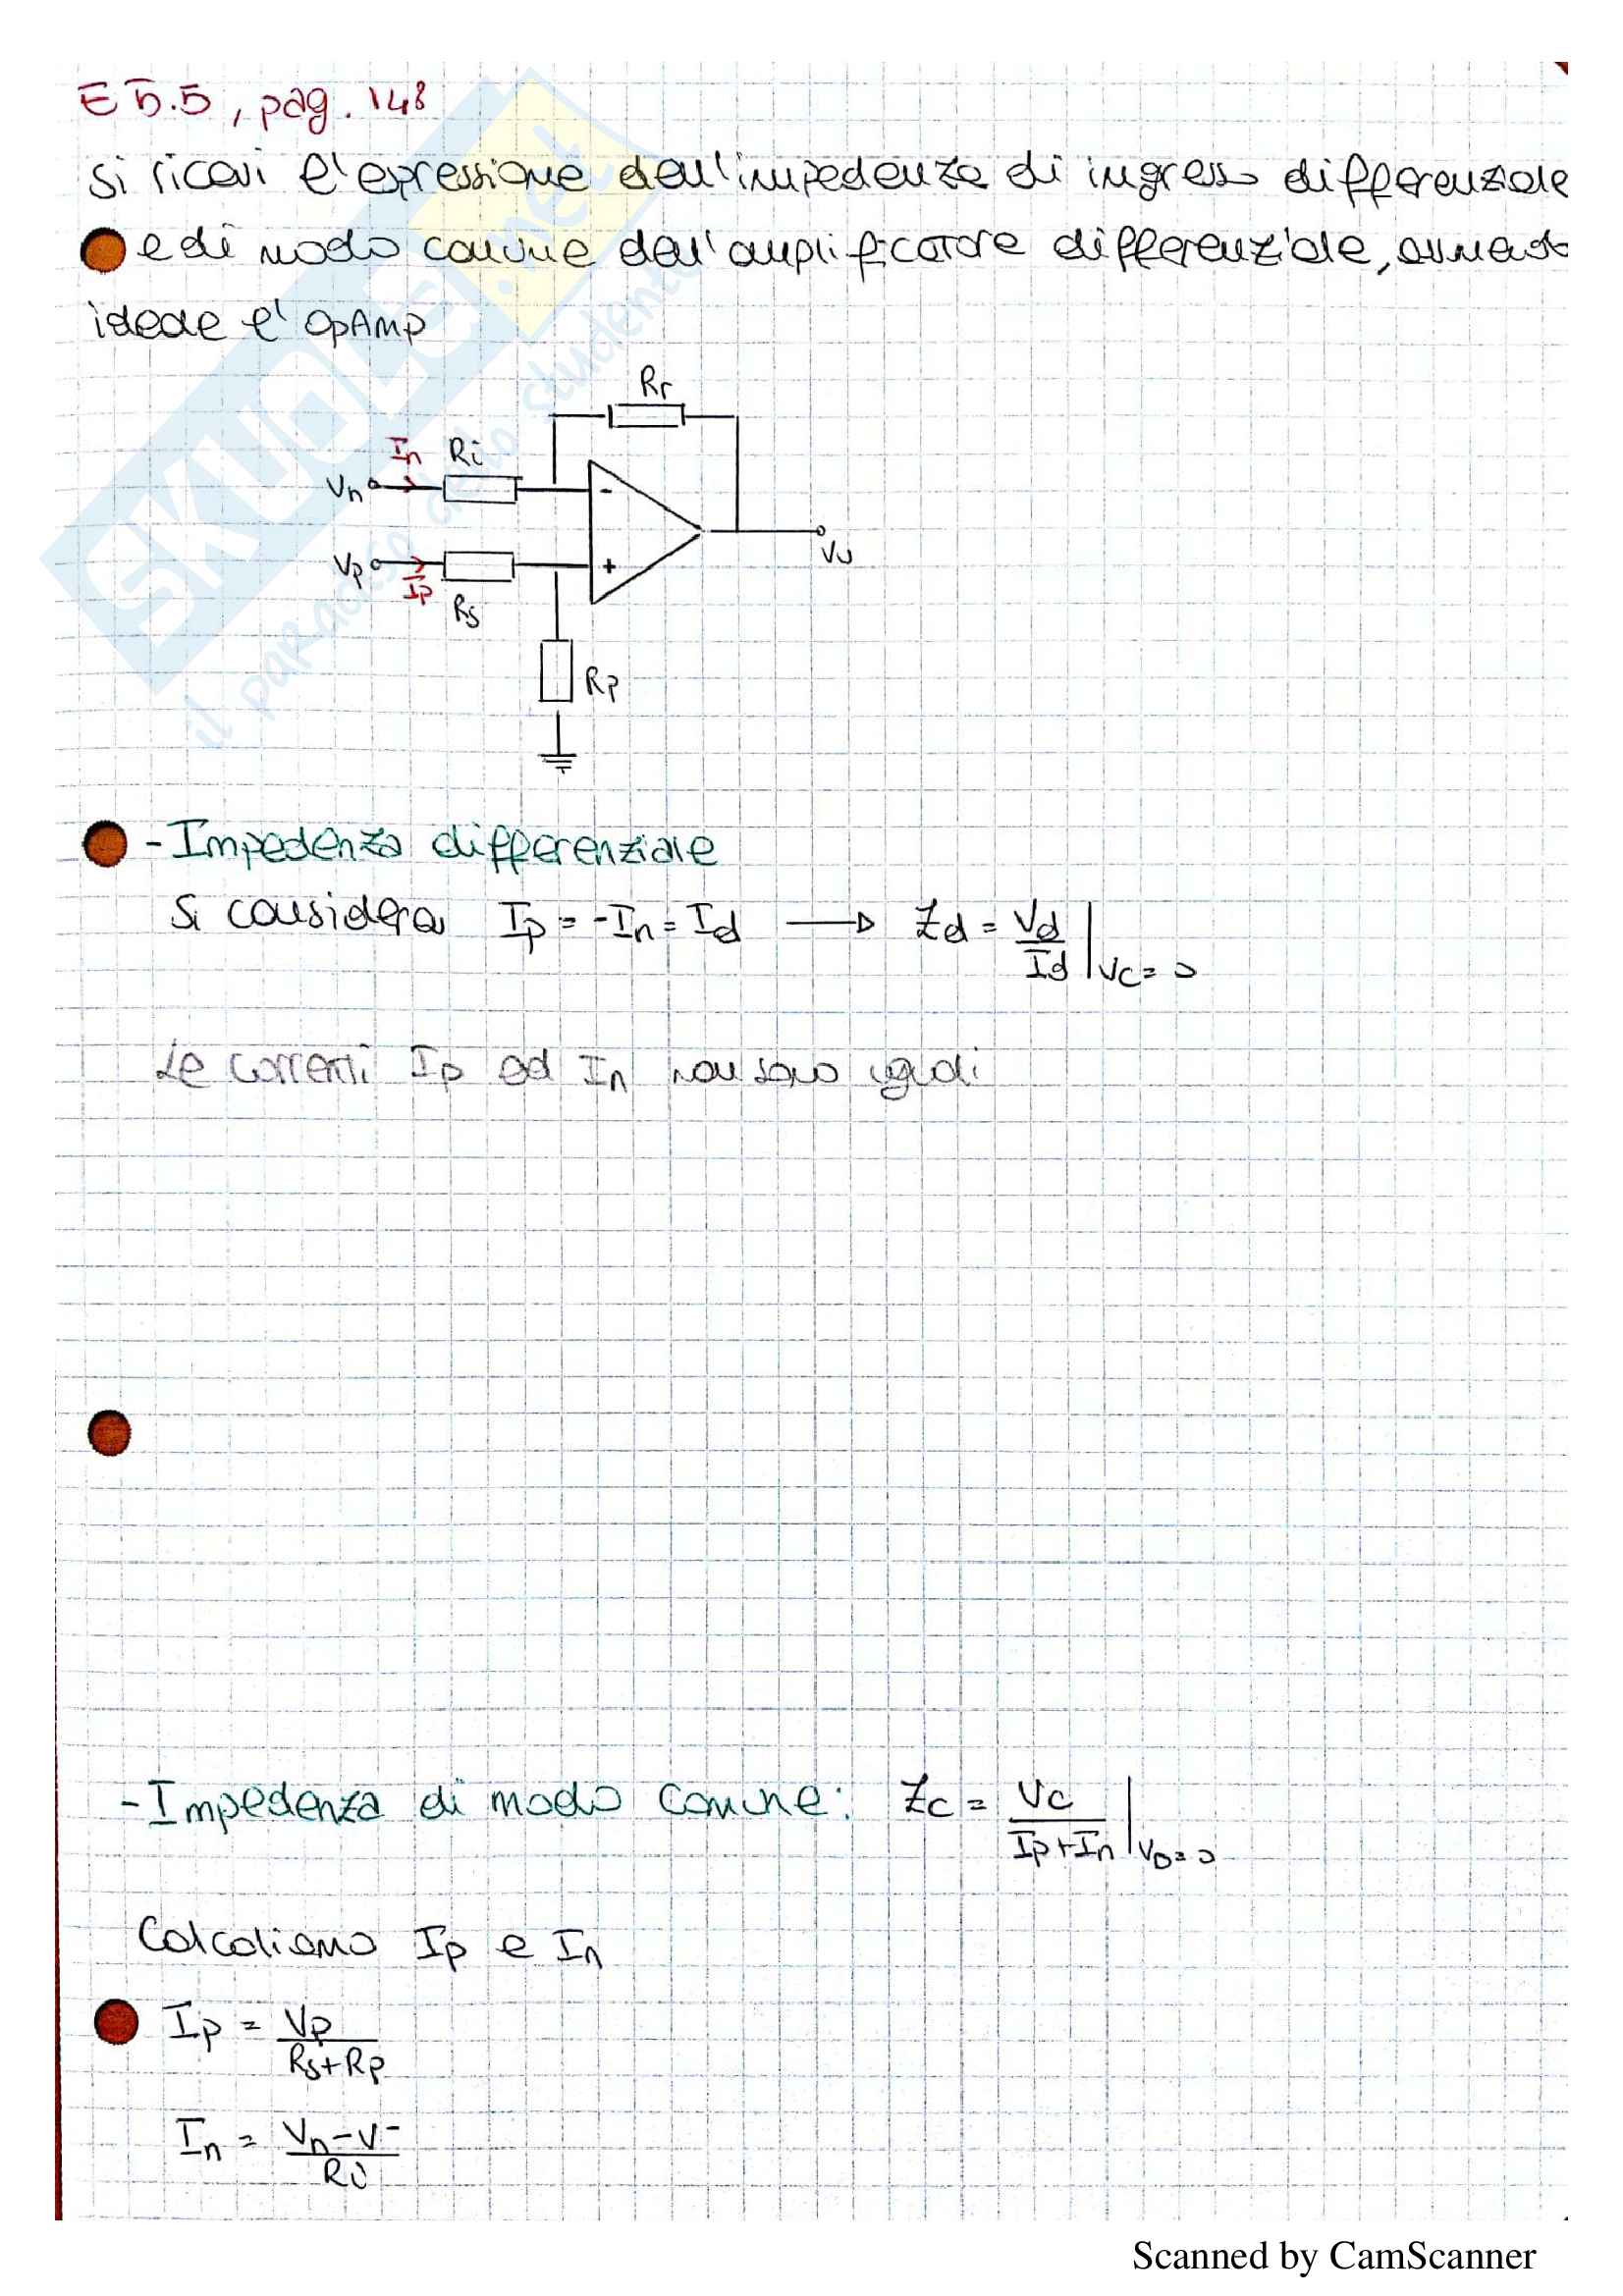 E 5.5, pag. 148
Si ricavi l'espressione dell'impedenza di ingresso differenziale
e di modo comune dell'amplificatore differenziale, assunto
ideale l'OpAmp
Rr
In Ri
Vn
-
Vp
+
Vu
Ip
Rs
Rp
- Impedenza differenziale
Si considera Ip = -In = Id → Zd = Vd/Id |Vc=0
Le correnti Ip ed In non sono uguali
- Impedenza di modo comune: Zc = Vc/(Ip+In) |VD=0
Calcoliamo Ip e In
Ip = Vp/(Rs+Rp)
In = (Vn-V-)/Ri
SKUOLA.net
il paradiso dello studente
Scanned by CamScanner